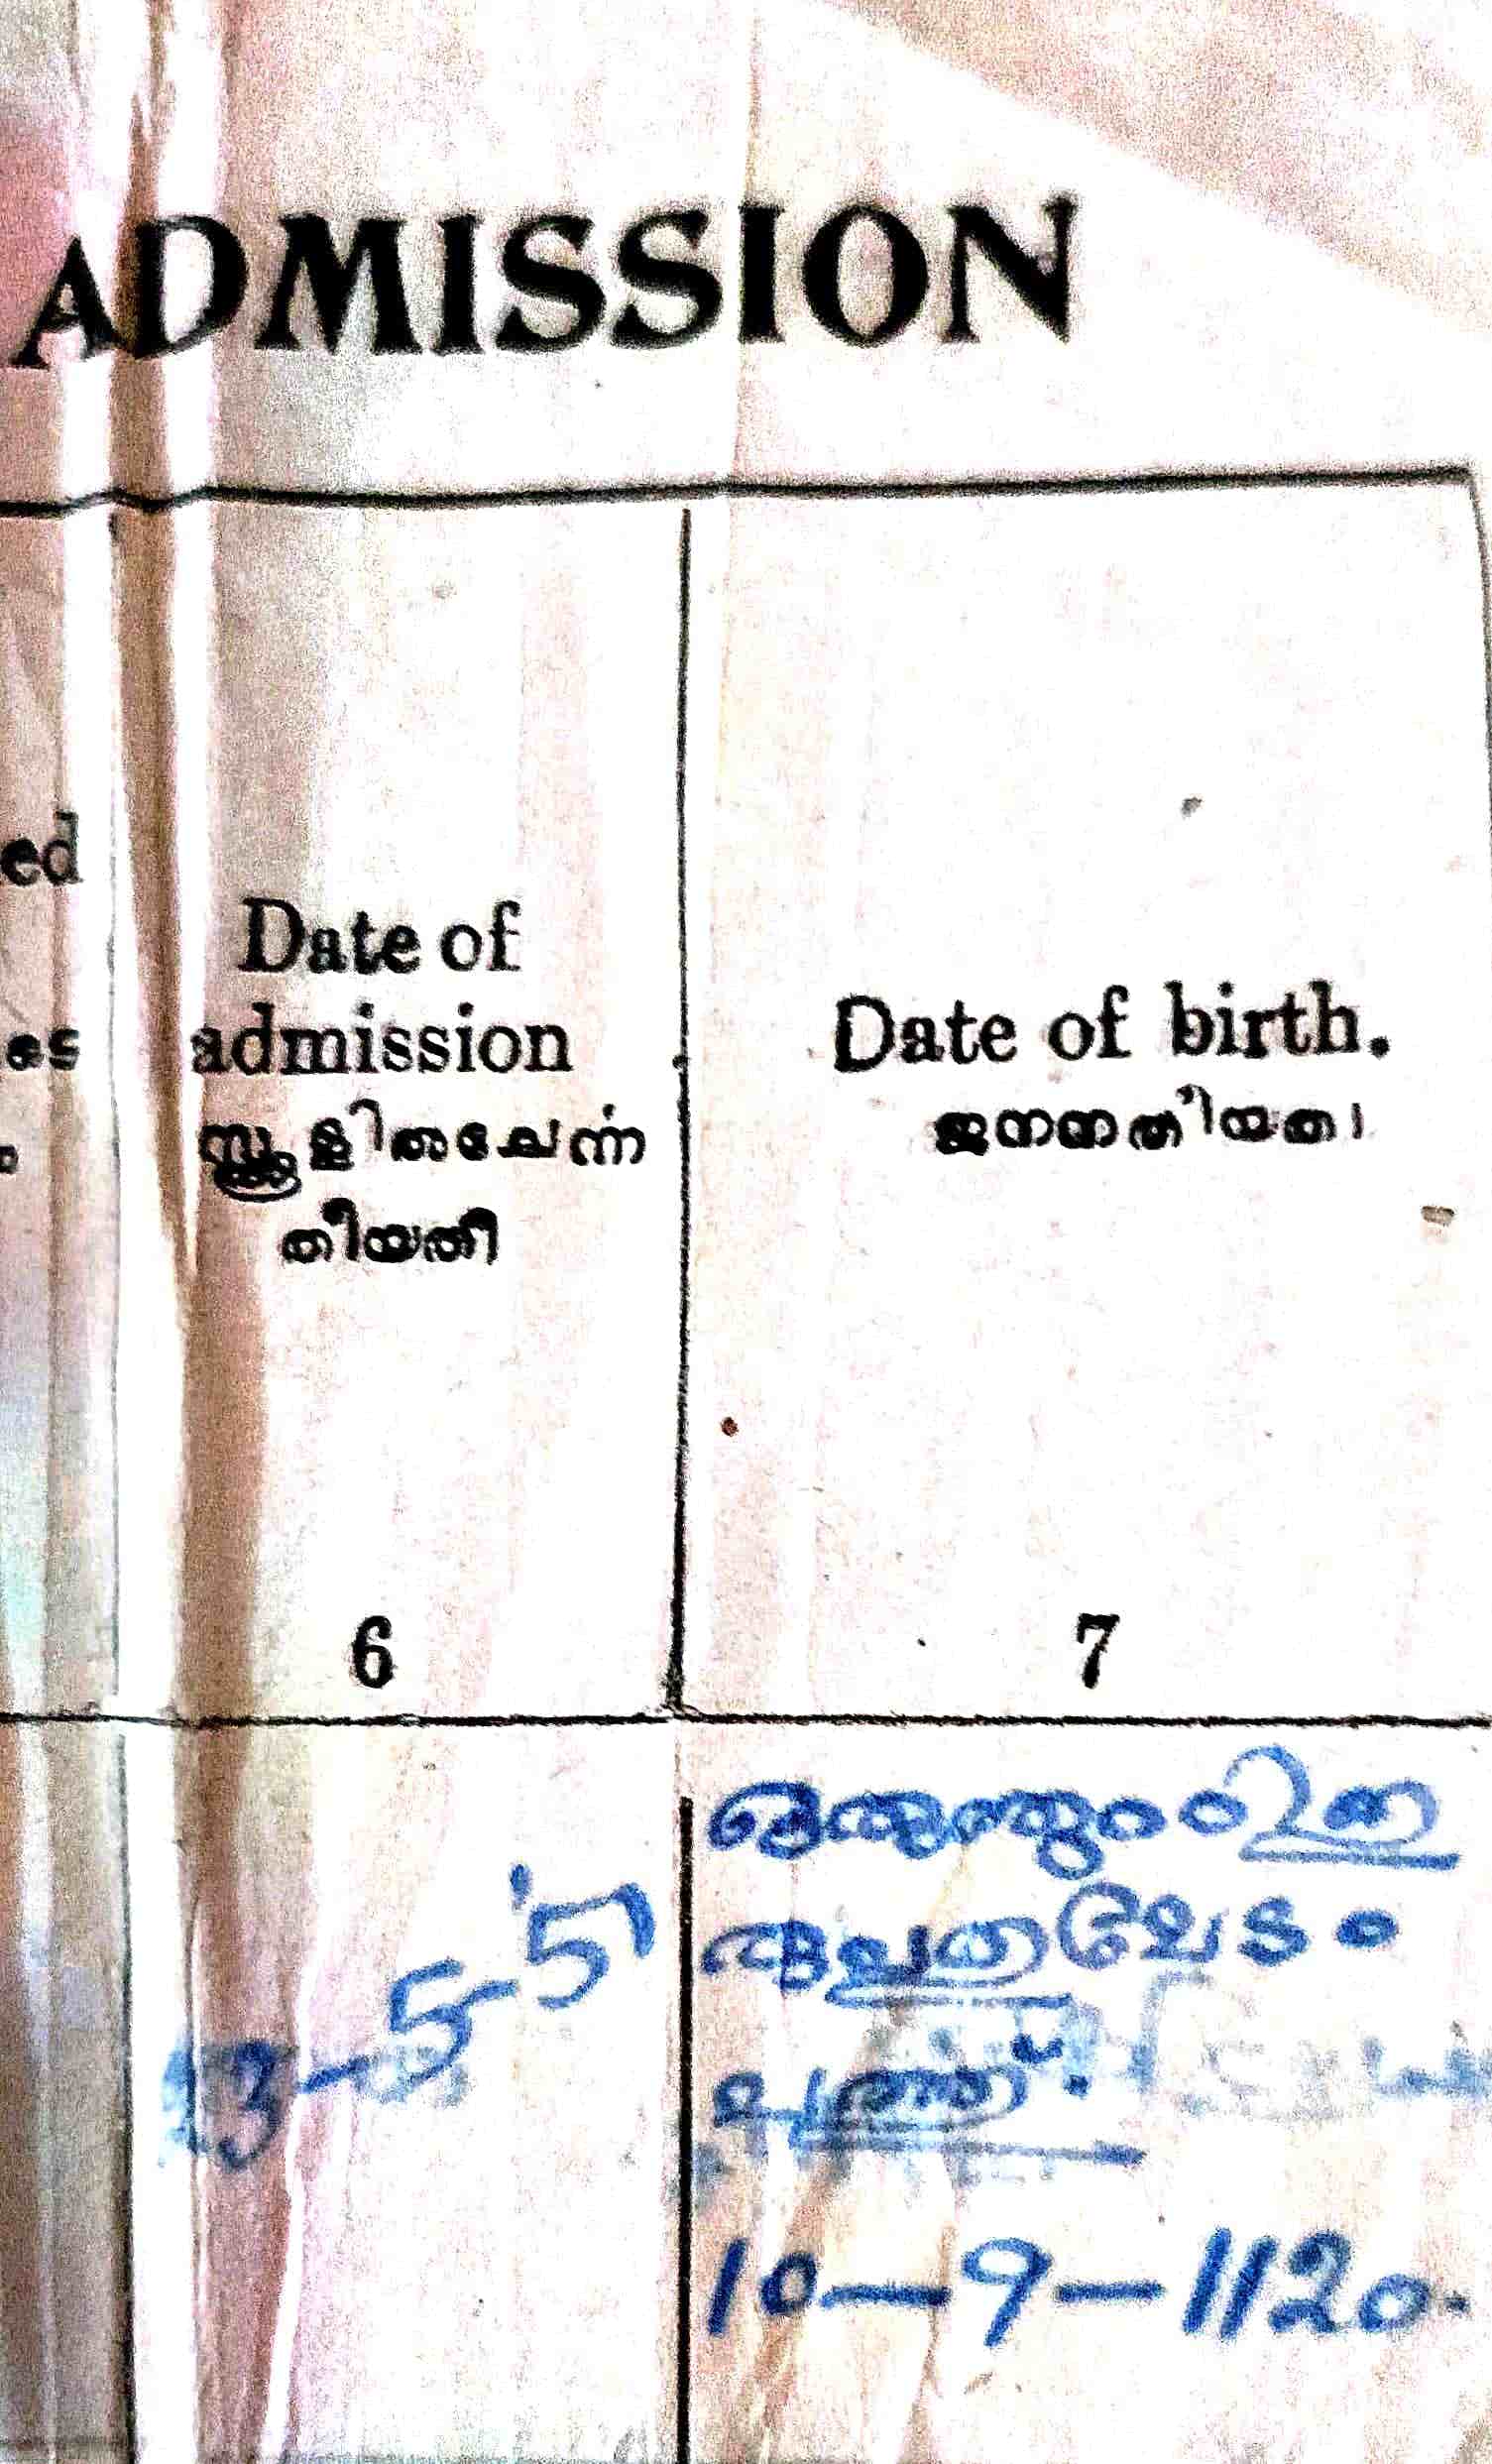 ADMISSION
ed
es
Date of
admission
സ്കൂളിൽചേർന്ന
തീയതി
6
Date of birth.
ജനനതീയതി
7
13-5-'51
ആയിരത്തി
മേടം
പത്ത്.
10-9-1120.